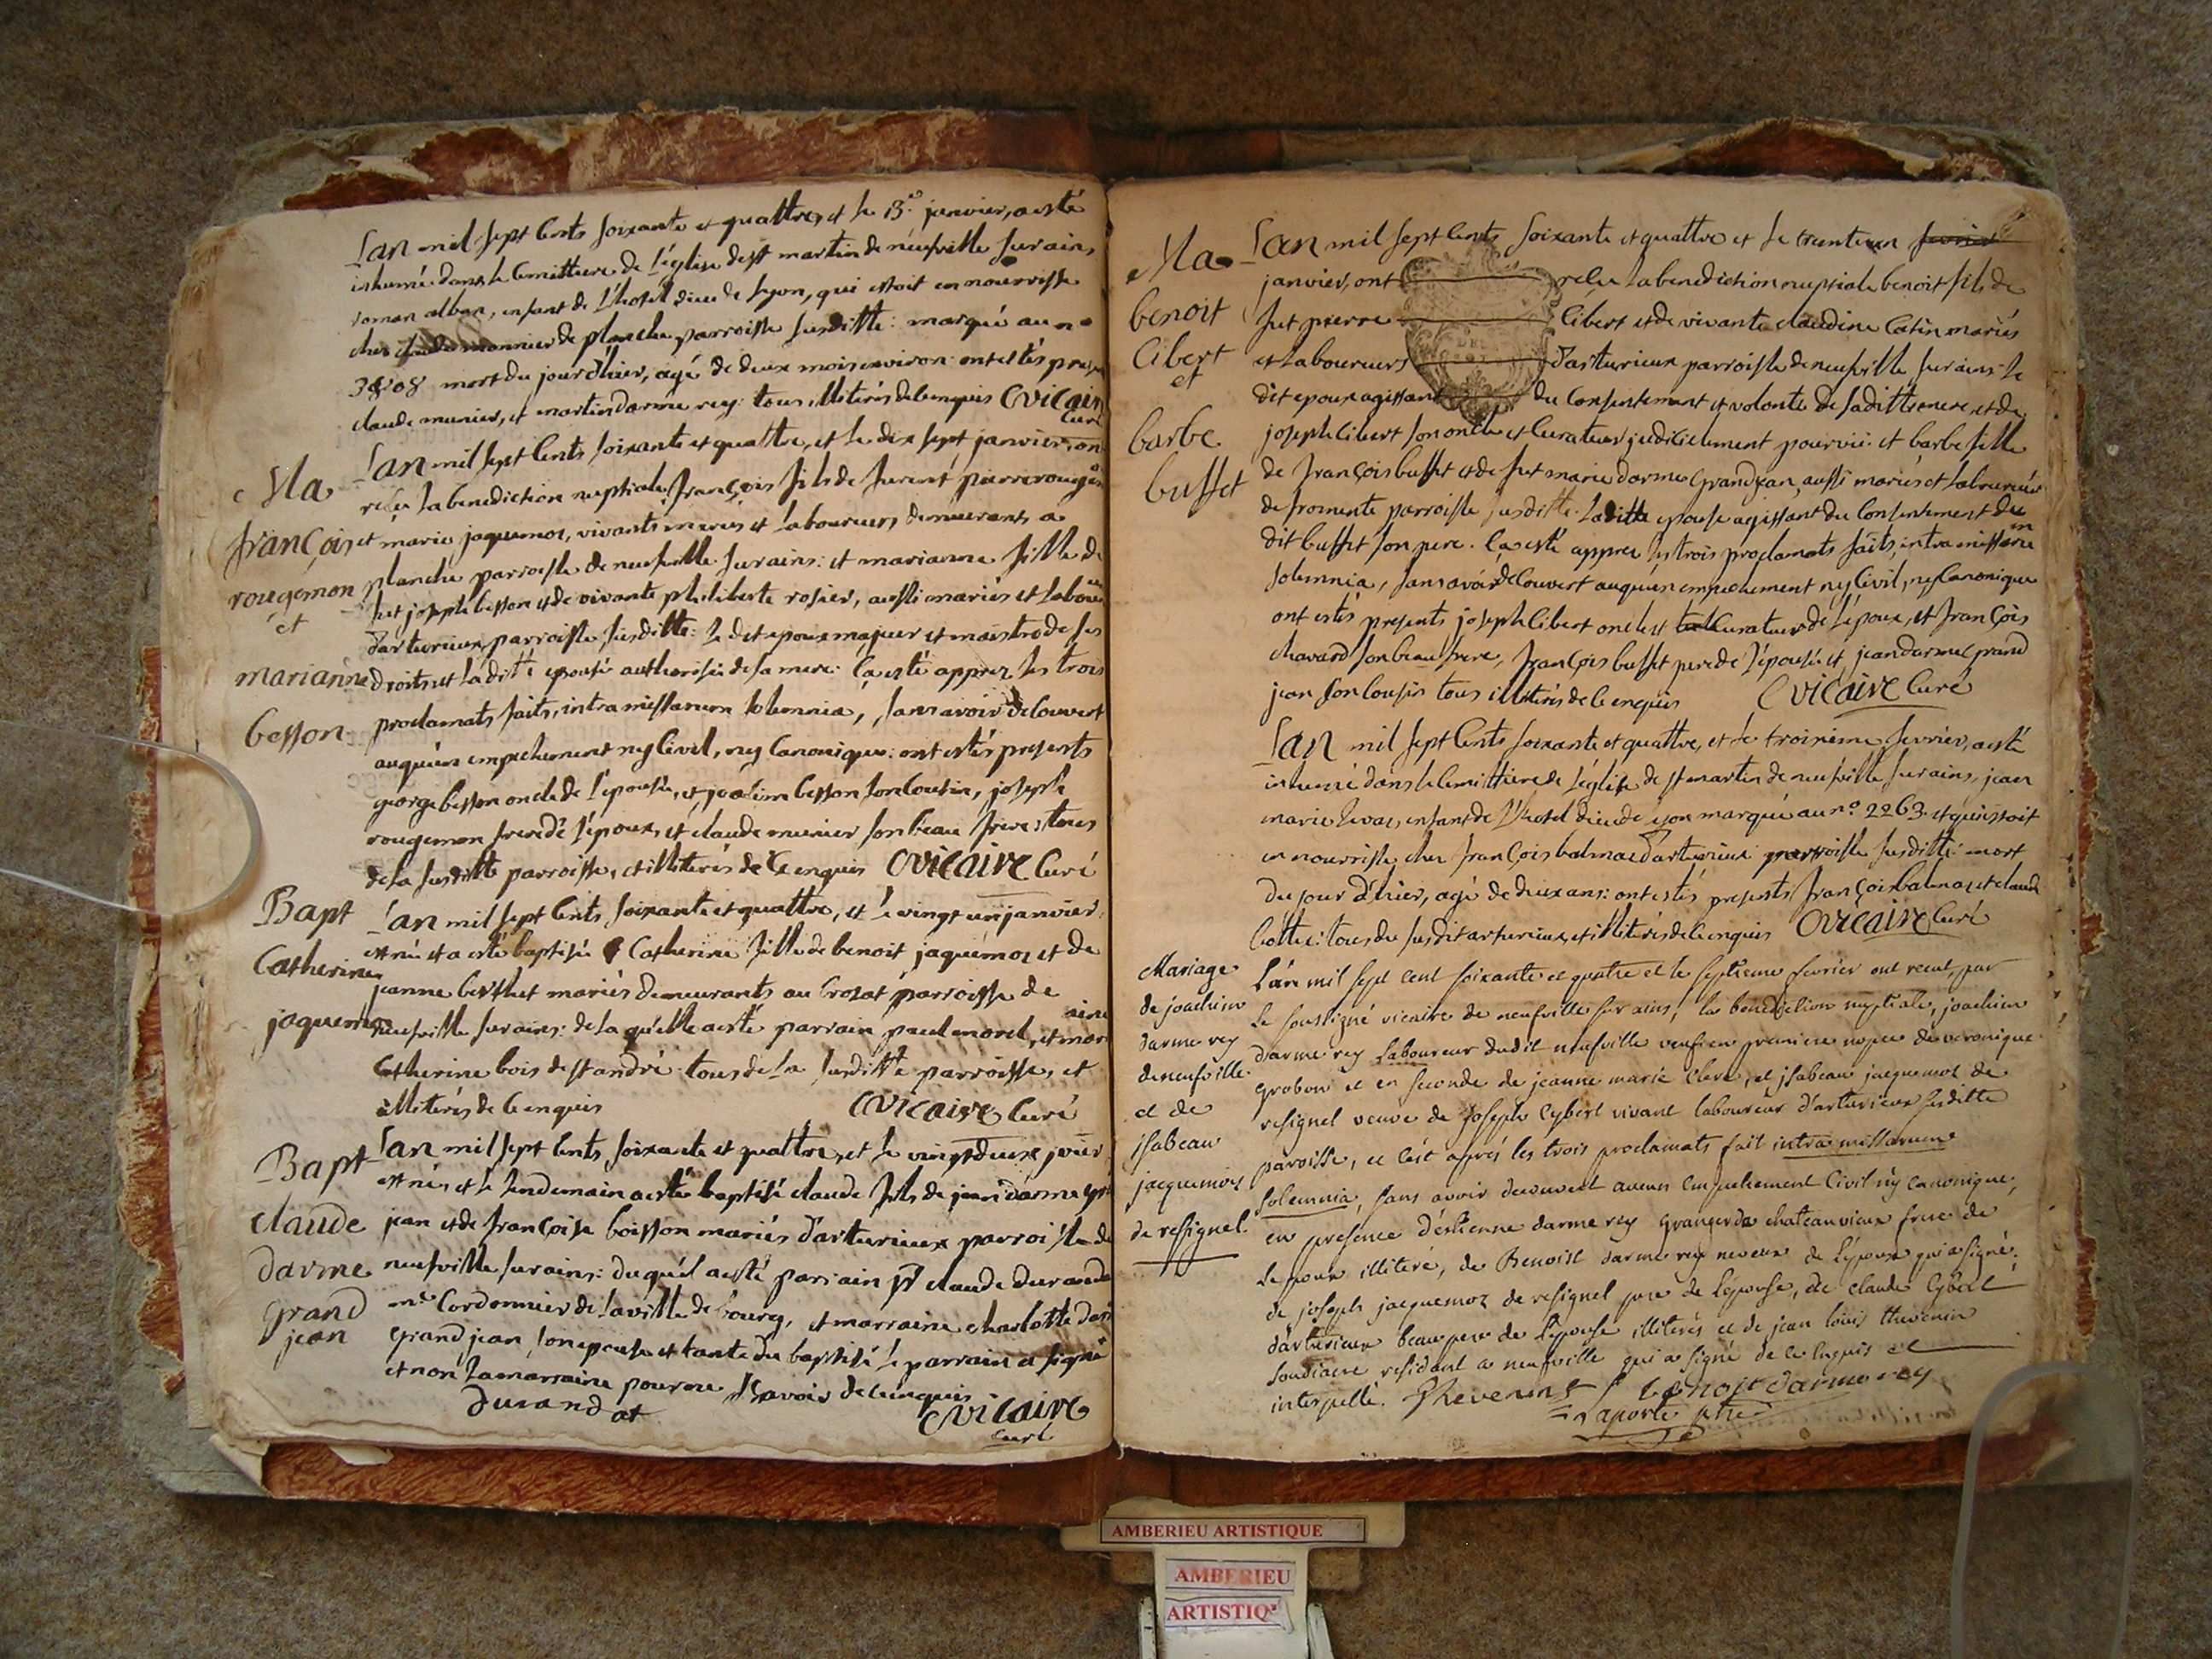 L'an mil sept Cents soixante et quattre, et le 13e janvier, a esté
inhumé dans le Cemittiere de l'église de st martin de neufville sur ains,
roman alban, enfant de l'hotel dieu de lyon, qui estoit en nourrisse
chez claude monnier de planche parroisse susditte: marqué au n°
3808 mort du jour d'hier, agé de deux mois environ: ont estés
claude munier, et martin darme rey: tous illiterés de ce enquis C vicaire
Curé
L'an mil sept Cents soixante et quattre, et le dix sept janvier, ont
Ma
reçu la benediction nuptiale, françois fils de furent pierre rougemon
françois
et marie jaquemoz, vivants mariés et laboureurs demeurants a
planche parroisse de neufville sur ains: et marianne fille de
rougemon
feu joseph besson et de vivante philiberte rosier, aussi mariés et laboureurs
et
d'arturieux, parroisse susditte: le dit epoux majeur et maistre de ses
marianne
droits, et la ditte epouse authorisée de sa mere: Ça esté apprez les trois
besson
proclamats faits, intra missarum solemnia, sans avoir decouvert
auquun empechement ny Civil, ny Canonique: ont estés presents
george besson oncle de l'epouse, et joachim besson son cousin, joseph
rougemon frere de l'epoux, et claude munier son beau frere: tous
de la susditte parroisse, et illiterés de ce enquis C vicaire Curé
Bapt
L'an mil sept Cents soixante et quattre, et le vingt un janvier,
est née et a esté baptisée Catherine fille de benoit jaquemoz et de
Catherine
jeanne berthet mariés demeurants au Crozat parroisse de
jaquemoz
neufville sur ains: de la quelle a esté parrain paul morel, et marraine
Catherine bois de st andré tous de la susditte parroisse, et
illiterés de ce enquis C vicaire Curé
Bapt
L'an mil sept Cents soixante et quattre, et le vingt deux jvier
est né, et le lendemain a esté baptisé claude fils de jean darme grand
claude
jean et de françoise boisson mariés d'arturieux parroisse de
darme
neufville sur ains: du quel a esté parrain sr claude durand
grand
me Cordonnier de la ville de bourg, et marraine charlotte darme
jean
grand jean, son epouse et tante du baptisé le parrain a signé
et non la marraine pour ne sçavoir de ce enquis
Durand at C vicaire
Curé
Ma
L'an mil sept Cents soixante et quattre et le trente un fevrier
janvier, ont reçu la benediction nuptiale benoit fils de
benoit
fut pierre Cibert et de vivante claudine Catin mariés
Cibert
et laboureurs d'arturieux parroisse de neufville sur ains: le
et
dit epoux agissant du Consentement et volonté de saditte mere, et de
barbe
joseph Cibert son oncle et Curateur judiciellement pourvu: et barbe fille
buffet
de françois buffet et de fut marie darme grand jean, aussi mariés et laboureurs
de fromente parroisse susditte. laditte epouse agissant du Consentement du
dit buffet son pere. Ça esté apprez les trois proclamats faits, intra missarum
solemnia, sans avoir decouvert auquun empechement ny Civil, ny Canonique
ont estés presents joseph Cibert oncle et Curateur de l'époux, et françois
chavard son beau frere, françois buffet pere de l'épouse, et jean darme grand
jean son Cousin tous illiterés de ce enquis C vicaire Curé
L'an mil sept Cents soixante et quattre, et le troisieme fevrier, a esté
inhumé dans le Cemittiere de l'église de st martin de neufville sur ains, jean
marie enfant de l'hotel dieu de lyon marqué au n° 2263. et qui estoit
en nourrisse chez françois balmaz d'arturieux parroisse susditte: mort
du jour d'hier, agé de deux ans: ont estés presents françois balmaz et claude
tous du susdit arturieux, et illiterés de ce enquis C vicaire Curé
Mariage
L'an mil sept cent soixante et quatre et le septieme fevrier ont recut, par
de joachim
le soussigné vicaire de neufville sur ains, la benediction nuptiale, joachim
darme rey
darme rey laboureur dudit neufville veuf en premiere nopce de veronique
de neufville
grobon et en seconde de jeanne marie et jsabeau jacquemoz de
et de
resignel veuve de joseph Cybert vivant laboureur d'arturieux susditte
jsabeau
paroisse, et c'est après les trois proclamats fait intra missarum
jacquemoz
solemnia, sans avoir decouvert aucun empechement Civil ny canonique,
de ressignel.
en presence d'estienne darme rey granger de chateauvieux frere de
l'epoux illiteré, de Benoist darme rey neveux de l'epoux qui a signé,
de joseph jacquemoz de resignel pere de l'epouse, de claude Cybert
d'arturieux beau pere de l'epouse illiterés et de jean louis thevenin
soudiacre residant a neufville qui a signé de ce enquis et
interpellé. Thevenin Benoist darme rey
Laporte ptre
AMBERIEU ARTISTIQUE
AMBERIEU
ARTISTIQ